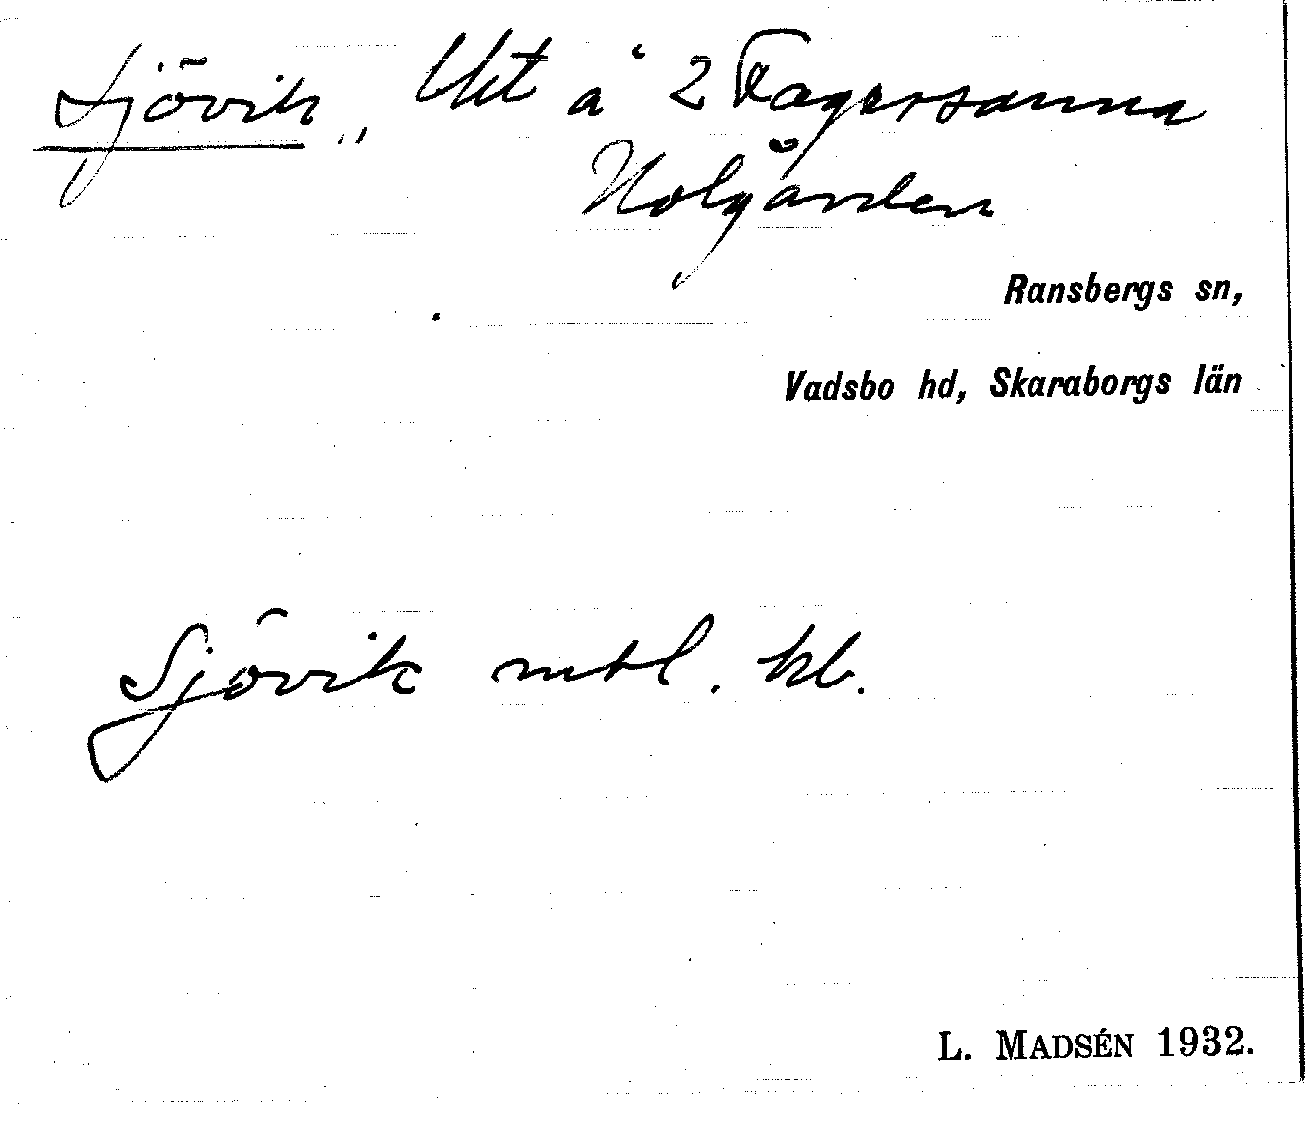 Sjövik, Ukt å 2 Fagersanna
Holgården
Ransbergs sn,
Vadsbo hd, Skaraborgs län
Sjövik mtl. kb.
L. MADSÉN 1932.